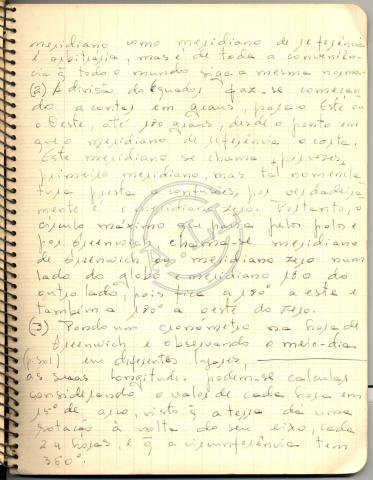 meridiano como meridiano de referência
é arbitrária, mas é de toda a conveniên-
cia q̃ todo o mundo siga a mesma norma.
(2) A divisão do equador faz-se começan
do a contar em graus, para o Este ou
o Oeste, até 180 graus, desde o ponto em
que o meridiano de referência o corta.
Este meridiano se chama, por vezes,
primeiro meridiano, mas tal nomencla
tura presta a confusões, por verdadeira
mente é o meridiano zero. Portanto, o
círculo máximo q̃ passa pelos polos e
por Greenwich chama-se meridiano
de Greenwich ou meridiano zero num
lado do globo e meridiano 180 do
outro lado, pois fica a 180° a este e
também a 180° a oeste do zero.
(3) Pondo um cronómetro na hora de
Greenwich e observando o meio-dia
(p. sol) em diferentes lugares,
as suas longitudes podem-se calcular
considerando o valor de cada hora em
15° de arco, visto q̃ a terra dá uma
rotação à volta do seu eixo, cada
24 horas, e q̃ a circumferência tem
360°.